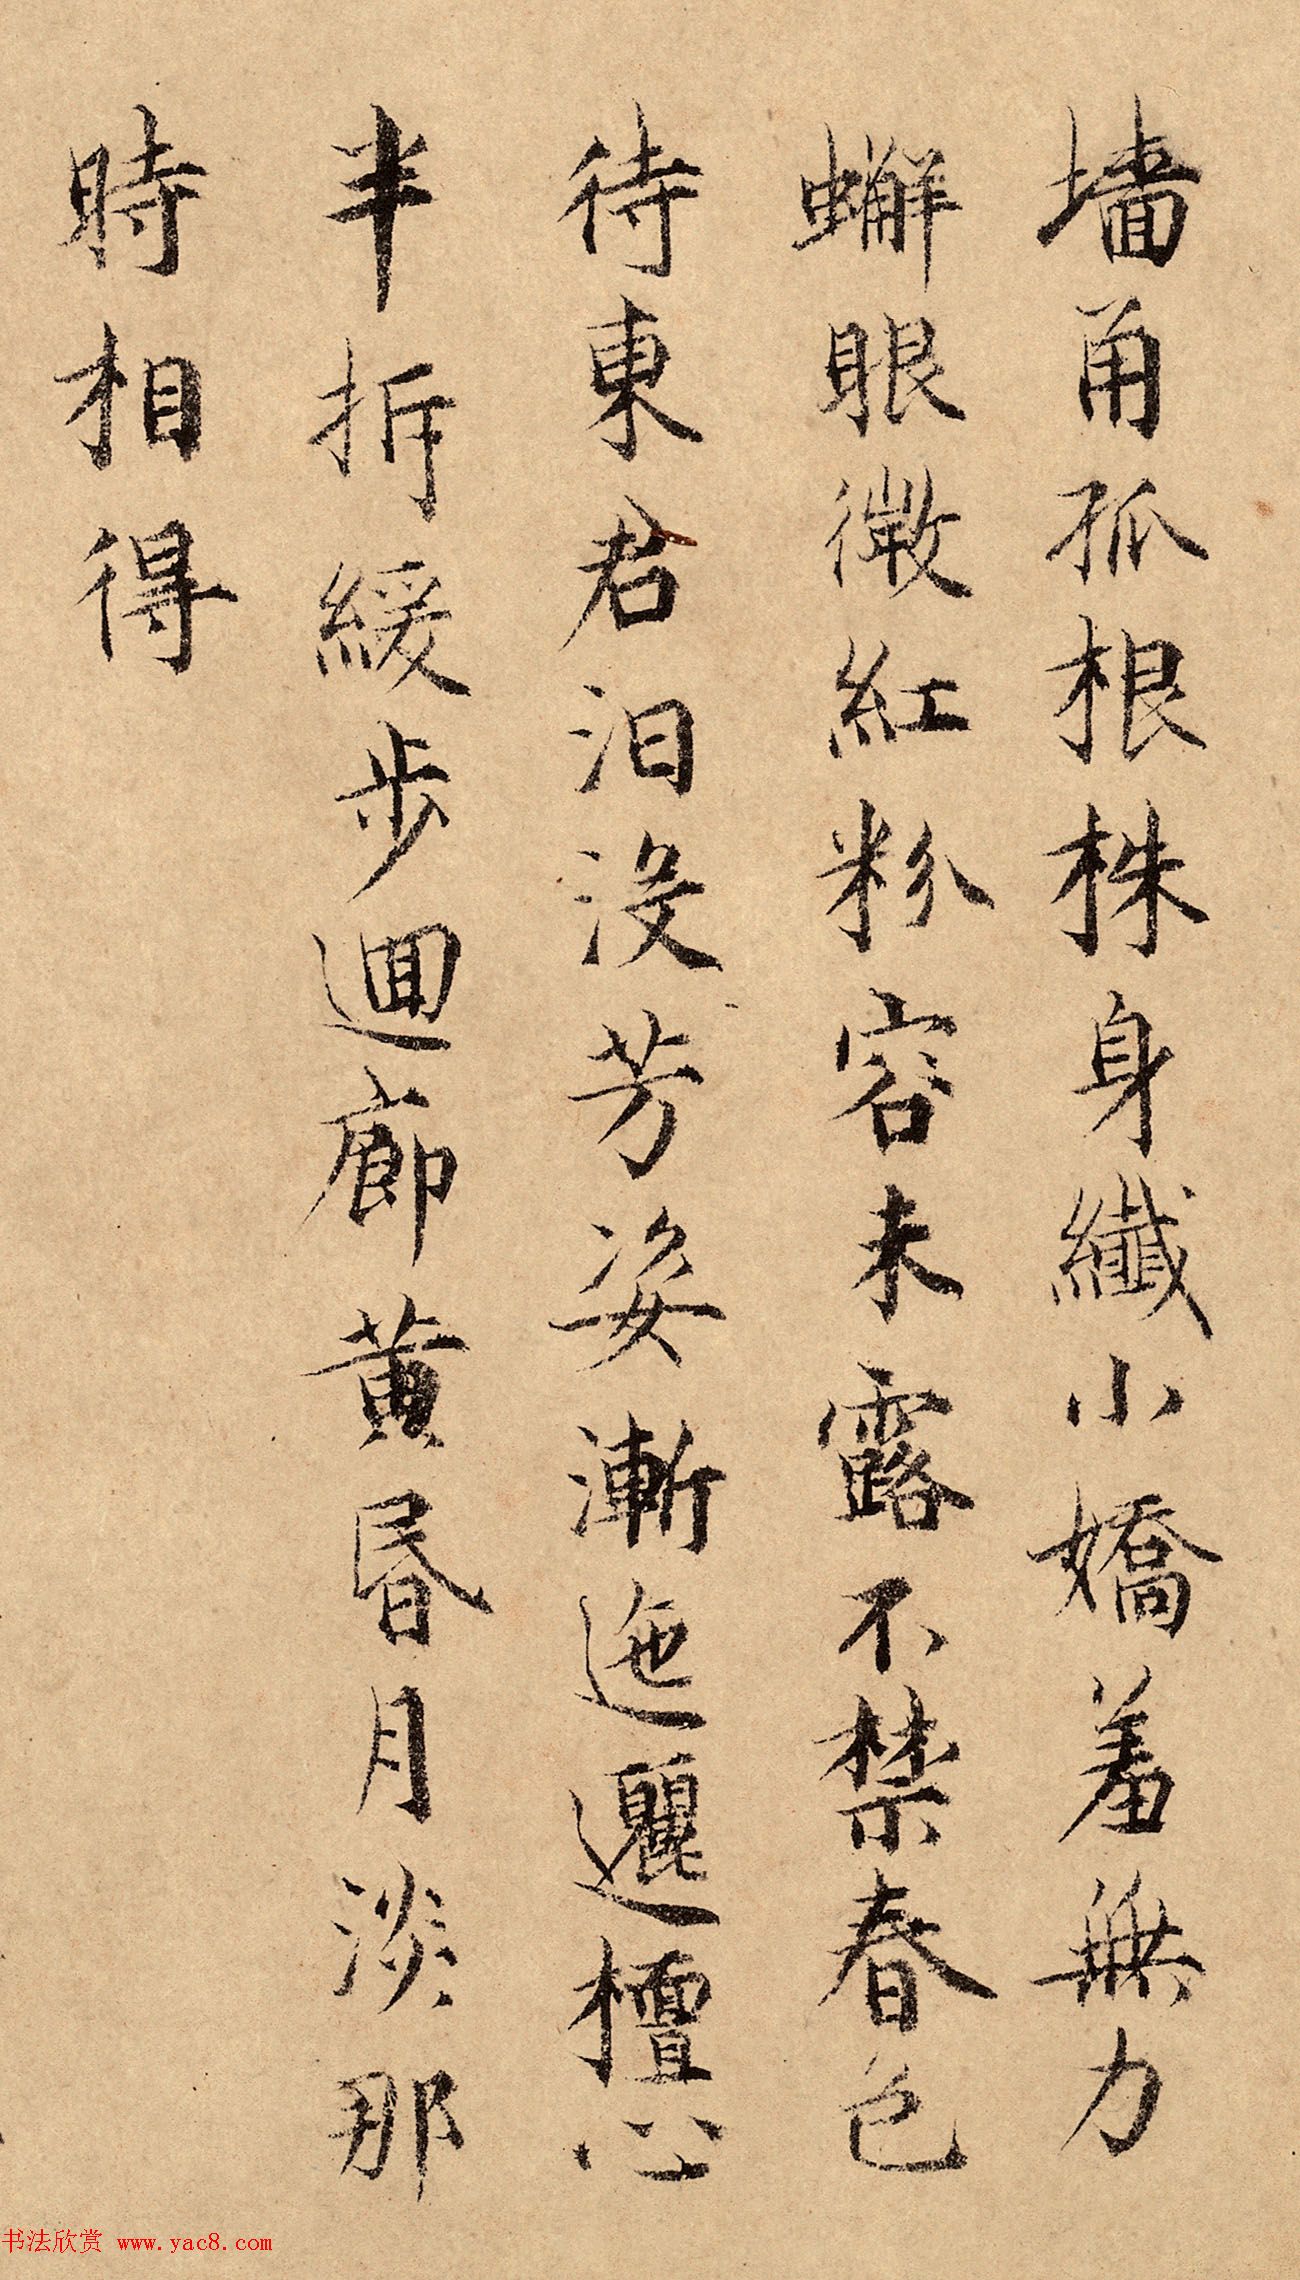 墙甬孤根株身纖小嬌羞無力
蠏眼微紅粉容未露不禁春色
待東君汩没芳姿漸迤邐檀心
半拆緩步迴廊黄昬月淡那
時相得
书法欣赏 www.yac8.com